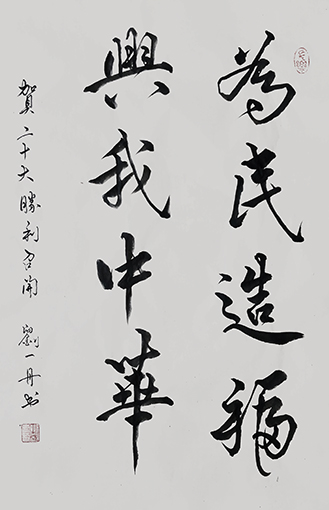 為民造福
興我中華
賀二十大勝利召開 劉一丹书